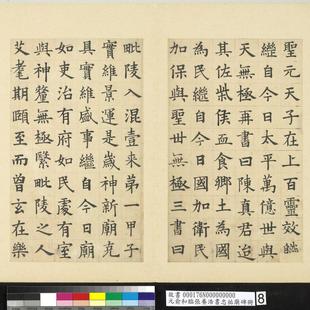 聖元天子在上百靈效職
繼自今日太平萬億世與
天無極再書曰陳真君追
其佐柴侯血食鄉土福國
為民繼自今日國加衛民
加保與聖世無極三書曰
毗陵入混壹來第一甲子
實維景運是歲神新廟克
具實維盛事繼自今日廟
如吏治有府如民處有室
與神釐無極繄毗陵之人
艾耄期頤至而曾玄在樂
故書 000176N000000000
8